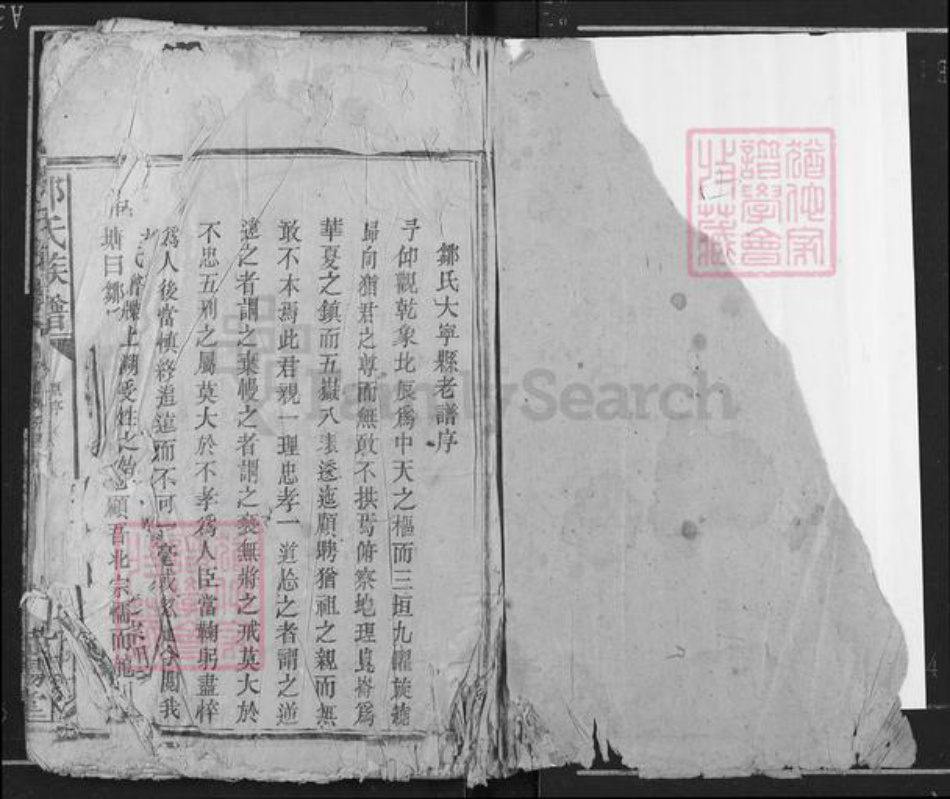 鄒氏大寧縣老譜序
予仰觀乾象北辰爲中天之樞而三垣九曜旋繞
歸向猶君之尊而無敢不拱焉俯察地理崑崙爲
華夏之鎮而五嶽八表逶迤顧聘猶祖之親而無
敢不本焉此君親一理忠孝一道怠之者謂之逆
違之者謂之棄慢之者謂之褻無將之戒莫大於
不忠五刑之屬莫大於不孝爲人臣當鞠躬盡悴
爲人後當慎終追遠而不可一毫或忽也今閱我
氏譜牒上溯受姓之始顧吾北宗
塘曰鄒
氏族譜
FamilySearch
猶他家譜學會收藏